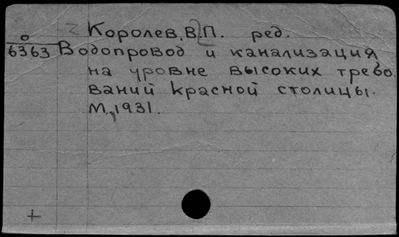 Королев, В. П. ред.
о
6363 Водопровод и канализация
на уровне высоких требо
ваний красной столицы.
М., 1931.
+